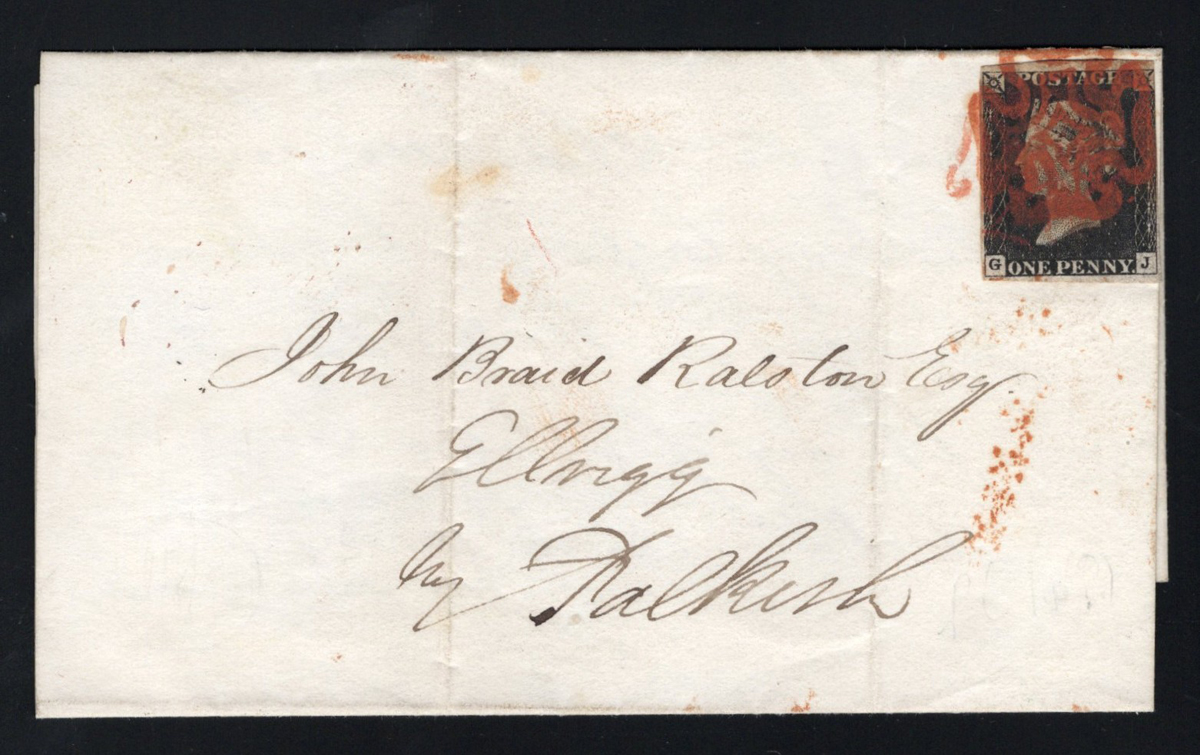 POSTAGE
G ONE PENNY. J
John Braid Ralston Esq.
Ellrigg
by Falkirk